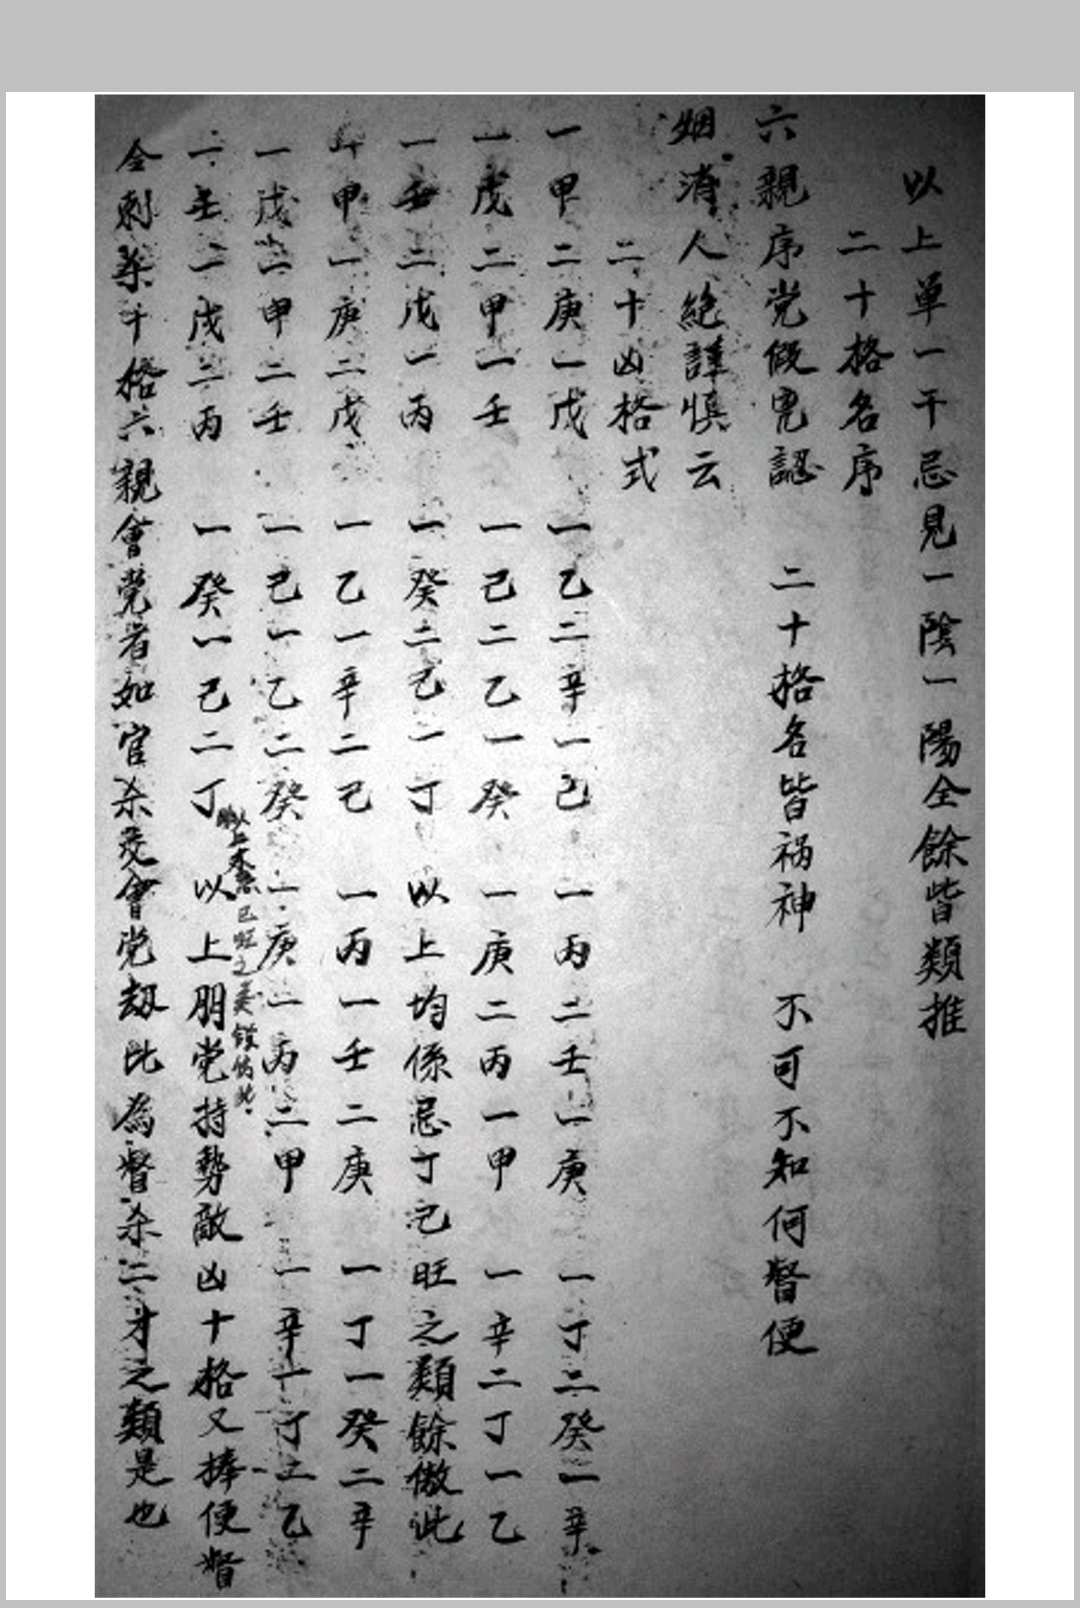 以上単一干忌見一陰一陽全餘皆類推
二十格名序
六親序党假鬼認 二十格名皆祸神 不可不知何督便
姻消人絕謹慎云
二十凶格式
一甲二庚一戊 一乙二辛一己 一丙二壬一庚 一丁二癸一辛
一戊二甲一壬 一己二乙一癸 一庚二丙一甲 一辛二丁一乙
一壬二戊一丙 一癸二己一丁 以上均係忌丁己旺之類餘倣此
一甲一庚二戊 一乙一辛二己 一丙一壬二庚 一丁一癸二辛
一戊一甲二壬 一己一乙二癸 一庚一丙二甲 一辛一丁二乙
以上忌己旺之類餘倣此
一壬一戊二丙 一癸一己二丁 以上朋党持勢敵凶十格又捧便督
全刺柒千格六親會党者如官杀㐫會党刼比為督杀二才之類是也